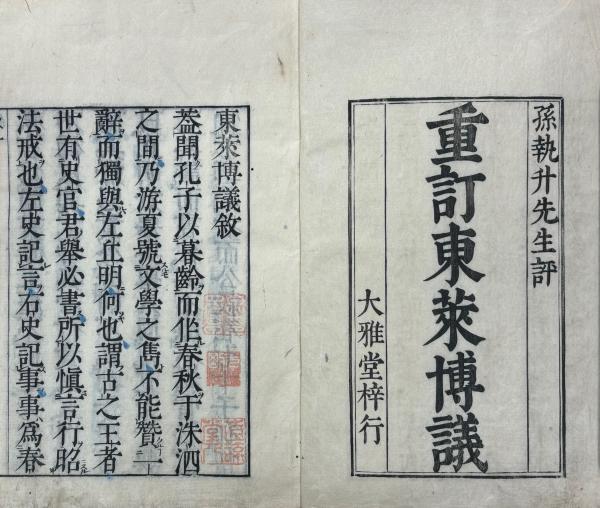 孫執升先生評
重訂東萊博議
大雅堂梓行
東萊博議敘
葢聞孔子以暮齡而作春秋于洙泗
之間乃游夏號文學之雋不能贊一
辭而獨與左丘明何也謂古之王者
世有史官君舉必書所以慎言行昭
法戒也左史記言右史記事事爲春